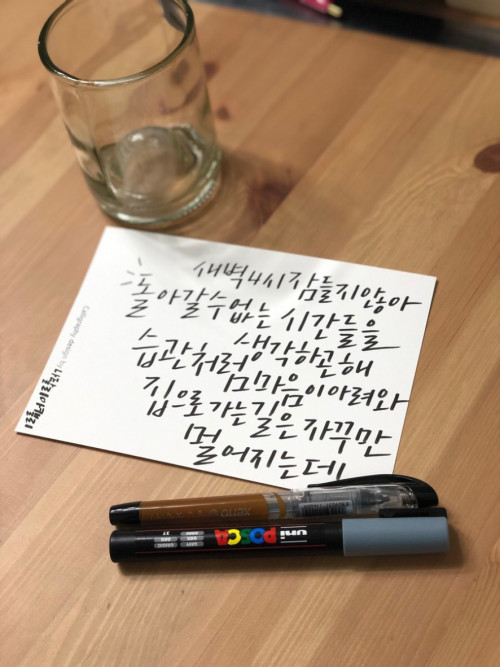 새벽4시 잠들지않아
돌아갈수없는 시간들을
습관처럼 생각하곤해
마음이아려와
집으로가는길은 자꾸만
멀어지는데
Calligraphy design by
uni POSCA